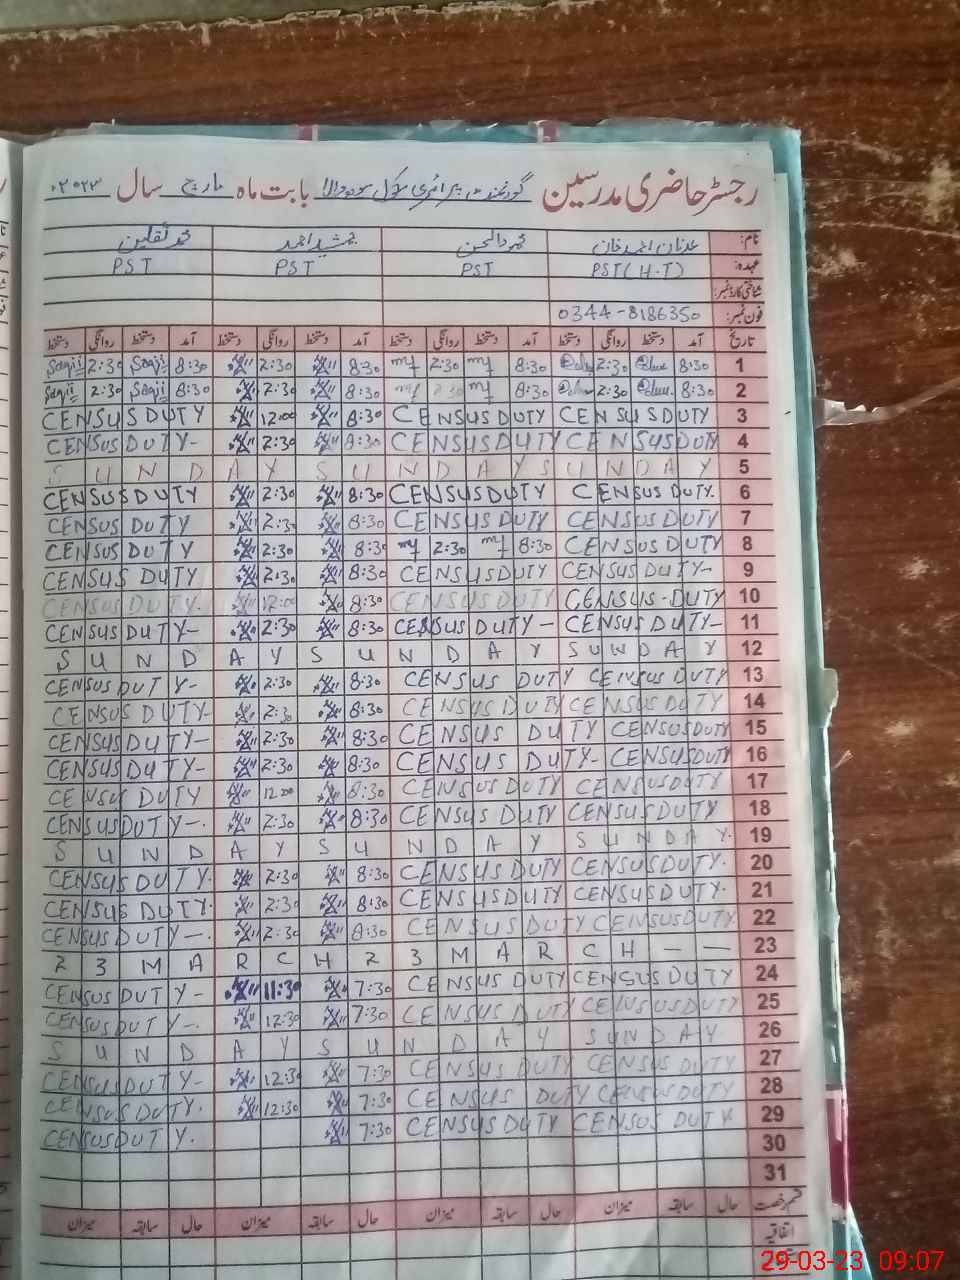 رجسٹر حاضری مدرسین گورنمنٹ پرائمری سکول بابت ماہ مارچ سال ۲۰۲۳
نام: عدنان احمد خان جمشید احمد محمد ثقلین
عہدہ: PST(H.T) PST PST PST
شناختی کارڈ نمبر:
فون نمبر: 0344-8186350
تاریخ آمد دستخط روانگی دستخط آمد دستخط روانگی دستخط آمد دستخط روانگی دستخط آمد دستخط روانگی دستخط
1 8:30 2:30 8:30 2:30 8:30 2:30 8:30 Saqii 2:30 Saqii
2 8:30 2:30 8:30 2:30 8:30 2:30 8:30 Saqii 2:30 Saqii
3 CENSUS DUTY CENSUS DUTY 8:30 12:00 CENSUS DUTY
4 CENSUS DUTY CENSUS DUTY 8:30 2:30 CENSUS DUTY-
5 SUNDAY SUNDAY SUNDAY
6 CENSUS DUTY. CENSUS DUTY 8:30 2:30 CENSUS DUTY
7 CENSUS DUTY CENSUS DUTY 8:30 2:30 CENSUS DUTY
8 CENSUS DUTY 8:30 2:30 8:30 2:30 CENSUS DUTY
9 CENSUS DUTY- CENSUS DUTY 8:30 2:30 CENSUS DUTY
10 CENSUS-DUTY CENSUS DUTY 8:30 12:00 CENSUS DUTY.
11 CENSUS DUTY- CENSUS DUTY- 8:30 2:30 CENSUS DUTY-
12 SUNDAY SUNDAY SUNDAY
13 CENSUS DUTY CENSUS DUTY 8:30 2:30 CENSUS DUTY-
14 CENSUS DUTY CENSUS DUTY 8:30 2:30 CENSUS DUTY-
15 CENSUS DUTY CENSUS DUTY 8:30 2:30 CENSUS DUTY-
16 CENSUS DUTY CENSUS DUTY- 8:30 2:30 CENSUS DUTY-
17 CENSUS DUTY CENSUS DUTY 8:30 12:00 CENSUS DUTY
18 CENSUS DUTY CENSUS DUTY 8:30 2:30 CENSUS DUTY-.
19 SUNDAY. SUNDAY SUNDAY
20 CENSUS DUTY. CENSUS DUTY 8:30 2:30 CENSUS DUTY.
21 CENSUS DUTY. CENSUS DUTY 8:30 2:30 CENSUS DUTY.
22 CENSUS DUTY CENSUS DUTY 8:30 2:30 CENSUS DUTY-.
23 23 MARCH 23 MARCH - -
24 CENSUS DUTY CENSUS DUTY 7:30 11:30 CENSUS DUTY-
25 CENSUS DUTY CENSUS DUTY 7:30 12:30 CENSUS DUTY-.
26 SUNDAY SUNDAY SUNDAY
27 CENSUS DUTY CENSUS DUTY 7:30 12:30 CENSUS DUTY-
28 CENSUS DUTY CENSUS DUTY 7:30 12:30 CENSUS DUTY.
29 CENSUS DUTY CENSUS DUTY 7:30 CENSUS DUTY.
30
31
قسم رخصت حال سابقہ میزان حال سابقہ میزان حال سابقہ میزان حال سابقہ میزان
اتفاقیہ
29-03-23 09:07